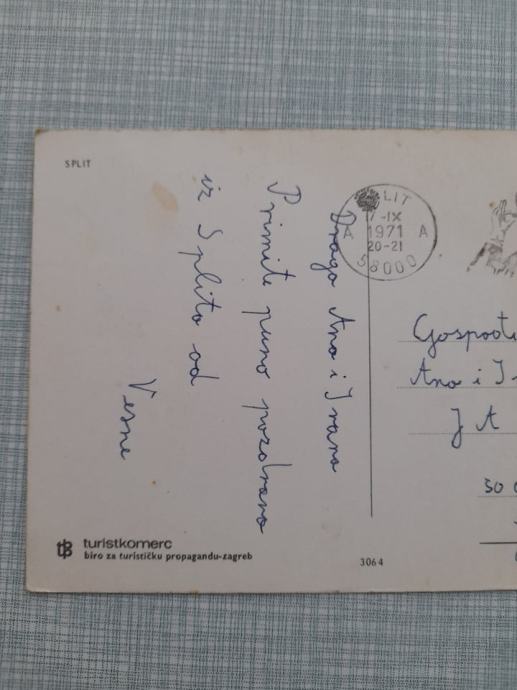 SPLIT
Drага Ana i Ivana
Primite puno pozdrava
iz Splita od
Vesne
SPLIT
7-IX
A 1971 A
20-21
58000
Ana i
J A
50
turistkomerc
biro za turističku propagandu-zagreb
3064